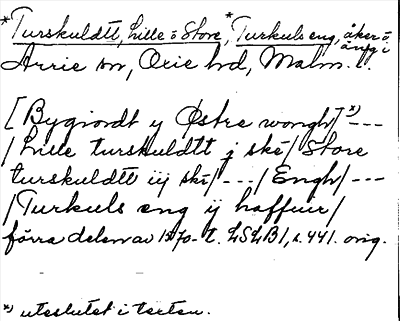 *Turskuldtt, Lille o Store, *Turkuls eng, åker o äng i
Arrie sn, Oxie hd, Malm. l.
[Bygiordt y Østre wongh]*) ---
/Lille turskuldtt j skē/ Store
turskuldtt iij skē/ --- /Engh/ ---
/Turkuls eng ij haffuir/
förra delen av 1570-t. LSLB1, s. 441. orig.
*) uteslutet i texten.